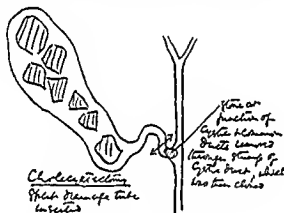 Cholecystectomy
Split drainage tube
inserted
Stone at
junction of
Cystic & Common
Ducts removed
through stump of
Cystic Duct, which
was then closed